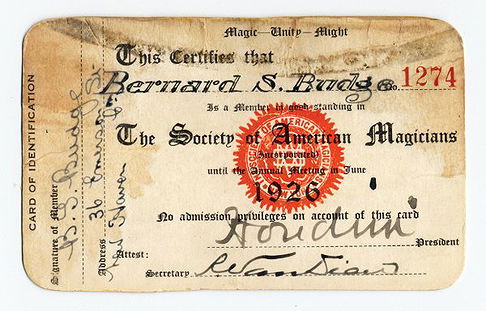 Magic—Unity—Might
This Certifies that
Bernard S. Budge No. 1274
Is a Member in good standing in
The Society of American Magicians
(Incorporated)
until the Annual Meeting in June
1926
No admission privileges on account of this card
Houdini
President
Attest:
Secretary
CARD OF IDENTIFICATION
Signature of Member
B. S. Budge
Address
36
Haven